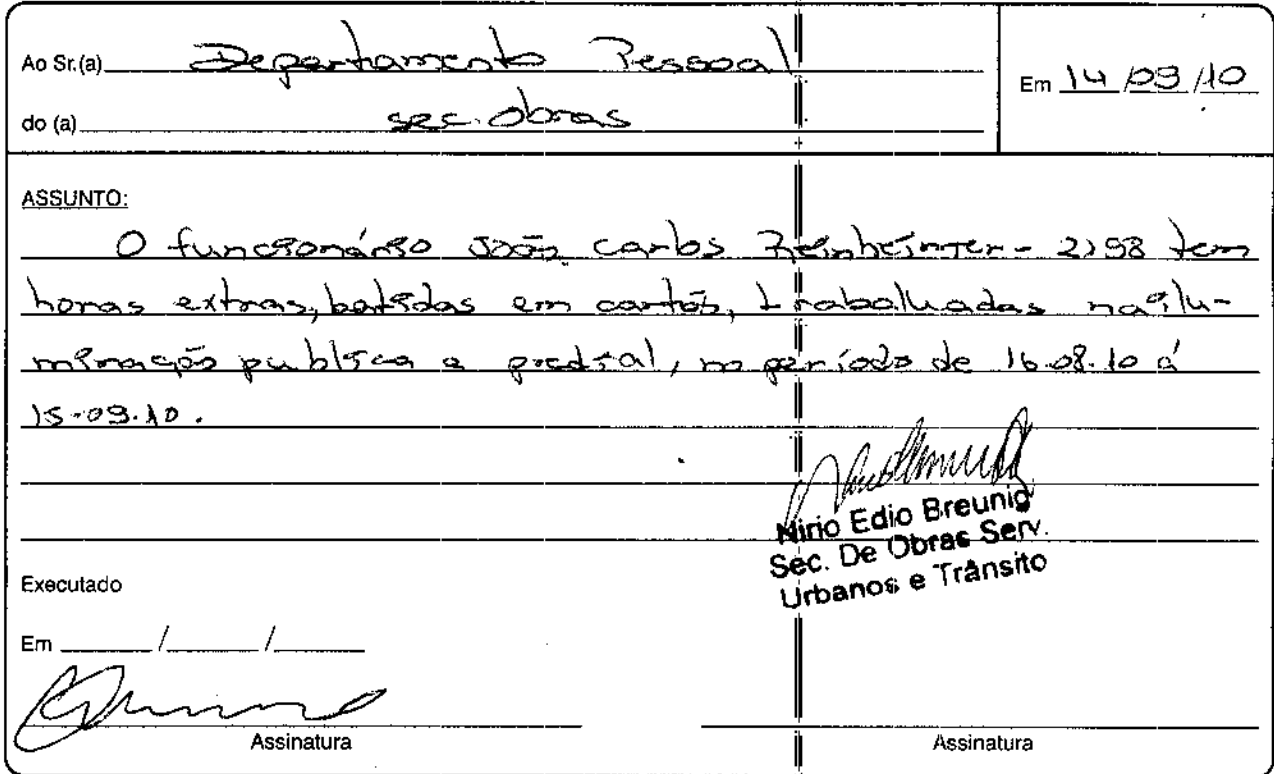 Ao Sr.(a) Departamento Pessoal
Em 14/09/10
do (a) sec. obras
ASSUNTO:
O funcionário João Carlos Reinheimer - 2198 tem
horas extras, batidas em cartão, trabalhadas na ilu-
minação publica e predial, no período de 16.08.10 á
15.09.10.
Nirio Edio Breunig
Sec. De Obras Serv.
Urbanos e Trânsito
Executado
Em / /
Assinatura
Assinatura